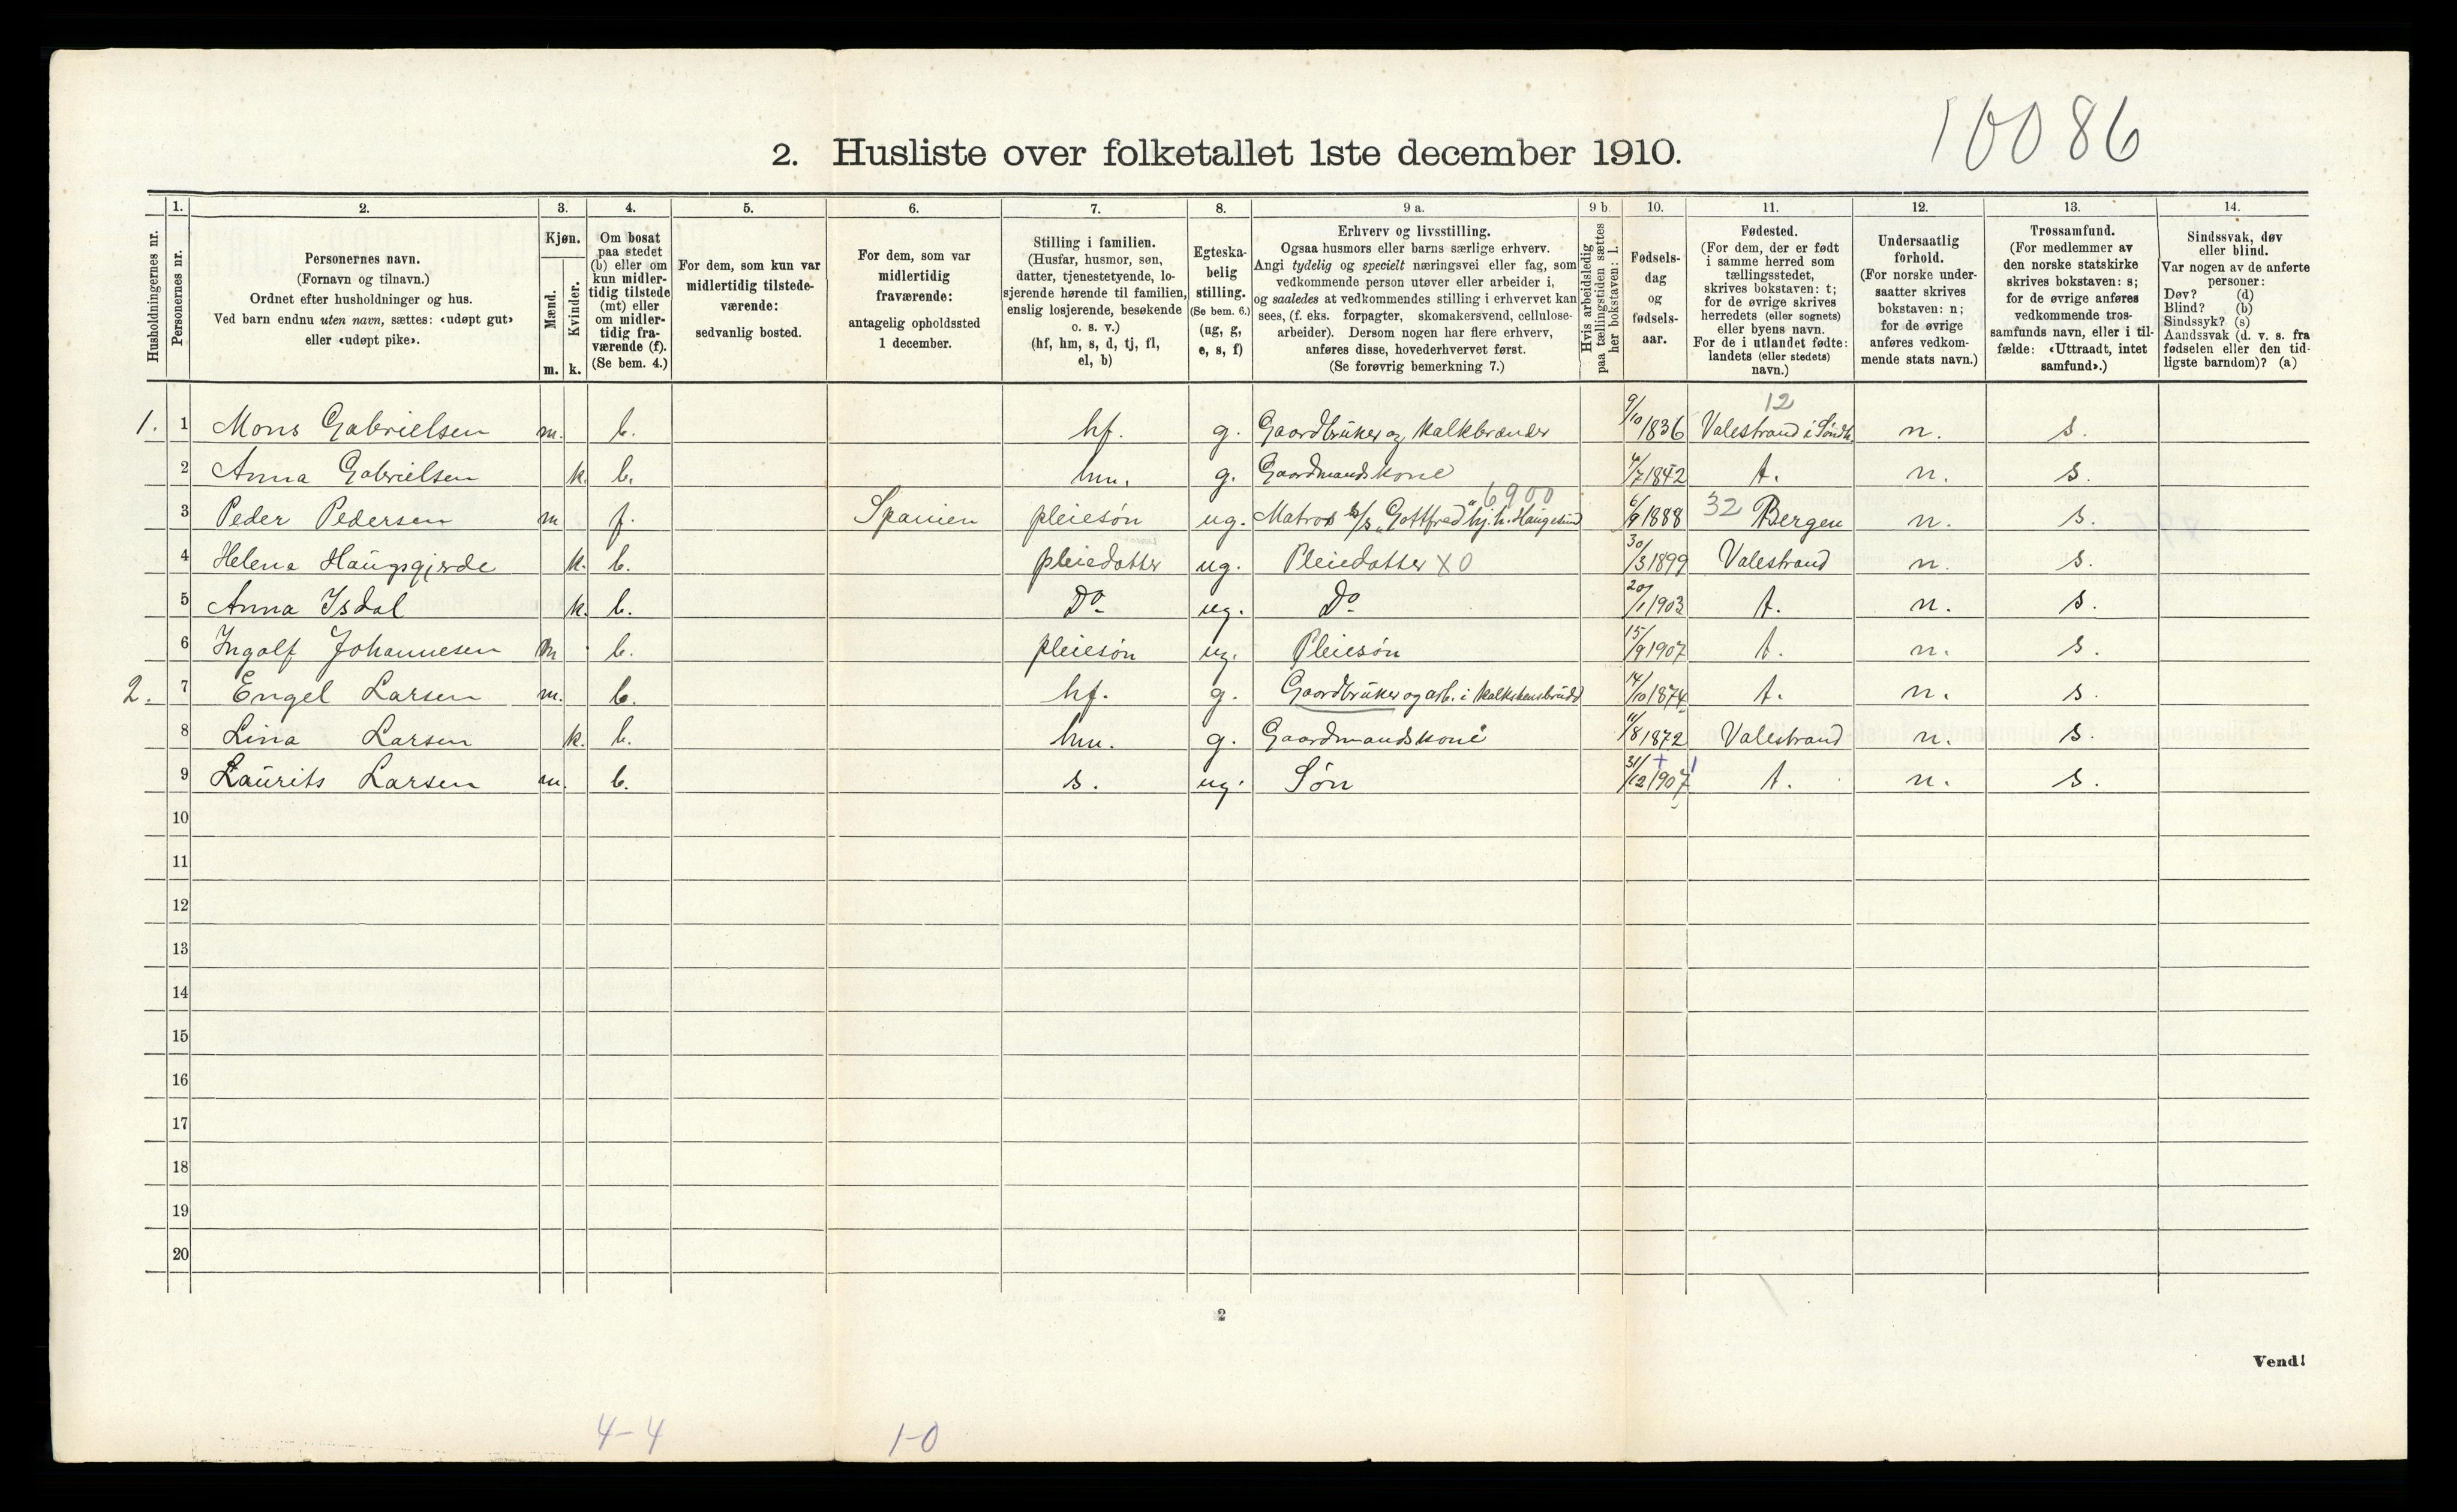 10086
2. Husliste over folketallet 1ste december 1910.
Husholdningernes nr.
1.
Personernes nr.
2.
Personernes navn.
(Fornavn og tilnavn.)
Ordnet efter husholdninger og hus.
Ved barn endnu uten navn, sættes: «udøpt gut»
eller «udøpt pike».
3.
Kjøn.
Mænd.
m.
Kvinder.
k.
4.
Om bosat
paa stedet
(b) eller om
kun midler-
tidig tilstede
(mt) eller
om midler-
tidig fra-
værende (f).
(Se bem. 4.)
5.
For dem, som kun var
midlertidig tilstede-
værende:
sedvanlig bosted.
6.
For dem, som var
midlertidig
fraværende:
antagelig opholdssted
1 december.
7.
Stilling i familien.
(Husfar, husmor, søn,
datter, tjenestetyende, lo-
sjerende hørende til familien,
enslig losjerende, besøkende
o. s. v.)
(hf, hm, s, d, tj, fl,
el, b)
8.
Egteska-
belig
stilling.
(Se bem. 6.)
(ug, g,
e, s, f)
9 a.
Erhverv og livsstilling.
Ogsaa husmors eller barns særlige erhverv.
Angi tydelig og specielt næringsvei eller fag, som
vedkommende person utøver eller arbeider i,
og saaledes at vedkommendes stilling i erhvervet kan
sees, (f. eks. forpagter, skomakersvend, cellulose-
arbeider). Dersom nogen har flere erhverv,
anføres disse, hovederhvervet først.
(Se forøvrig bemerkning 7.)
9 b
Hvis arbeidsledig
paa tællingstiden sættes
her bokstaven: l.
10.
Fødsels-
dag
og
fødsels-
aar.
11.
Fødested.
(For dem, der er født
i samme herred som
tællingsstedet,
skrives bokstaven: t;
for de øvrige skrives
herredets (eller sognets)
eller byens navn.
For de i utlandet fødte:
landets (eller stedets)
navn.)
12.
Undersaatlig
forhold.
(For norske under-
saatter skrives
bokstaven: n;
for de øvrige
anføres vedkom-
mende stats navn.)
13.
Trossamfund.
(For medlemmer av
den norske statskirke
skrives bokstaven: s;
for de øvrige anføres
vedkommende tros-
samfunds navn, eller i til-
fælde: «Uttraadt, intet
samfund».)
14.
Sindssvak, døv
eller blind.
Var nogen av de anførte
personer:
Døv? (d)
Blind? (b)
Sindssyk? (s)
Aandssvak (d. v. s. fra
fødselen eller den tid-
ligste barndom)? (a)
12
1. 1 Mons Gabrielsen m. b. hf. g. Gaardbruker og Kalkbrænder 9/10 1836 Valestrand i Søndh. n. s.
2 Anna Gabrielsen k. b. hm. g. Gaardmandskone 4/7 1842 t. n. s.
6900
3 Peder Pedersen m f. Spanien pleiesøn ug. Matros S/S "Gottfred" hj.h. Haugesund 6/9 1888 32 Bergen n. s.
4 Helena Haugsgjerde k. b. pleiedatter ug. Pleiedatter X0 30/3 1899 Valestrand n. s.
5 Anna Isdal k. b. Do ug. Do 20/1 1903 t. n. s.
6 Ingolf Johannesen m b. pleiesøn ug. Pleiesøn 15/9 1907 t. n. s.
2. 7 Engel Larsen m. b. hf. g. Gaardbruker og arb. i Kalkstensbrudd 14/10 1874 t. n. s.
8 Lina Larsen k. b. hm. g. Gaardmandskone 11/8 1872 Valestrand n. s.
9 Laurits Larsen m. b. s. ug. Søn 31/12 1907 t. n. s.
10
11
12
13
14
15
16
17
18
19
20
2
Vend!
4-4
1-0